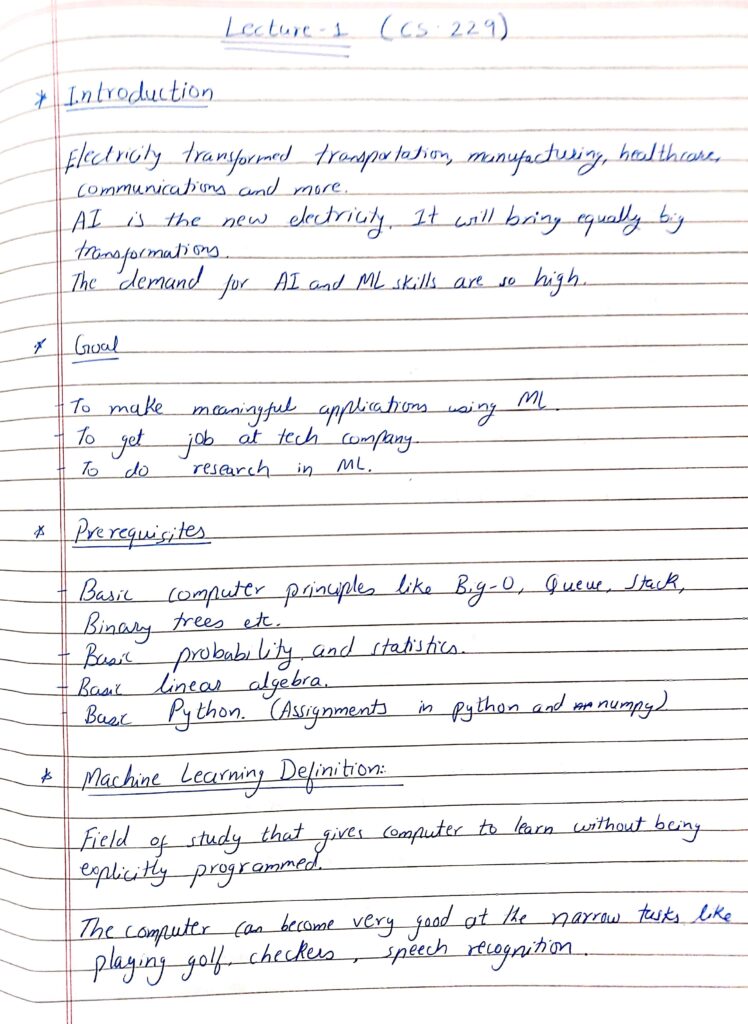 Lecture-1 (CS-229)
* Introduction
Electricity transformed transportation, manufacturing, healthcare,
communications and more.
AI is the new electricity. It will bring equally big
transformations.
The demand for AI and ML skills are so high.
* Goal
- To make meaningful applications using ML.
- To get job at tech company.
- To do research in ML.
* Prerequisites
- Basic computer principles like Big-O, Queue, Stack,
Binary trees etc.
- Basic probability and statistics.
- Basic linear algebra.
- Basic Python. (Assignments in python and numpy)
* Machine Learning Definition:
Field of study that gives computer to learn without being
explicitly programmed.
The computer can become very good at the narrow tasks like
playing golf, checkers, speech recognition.